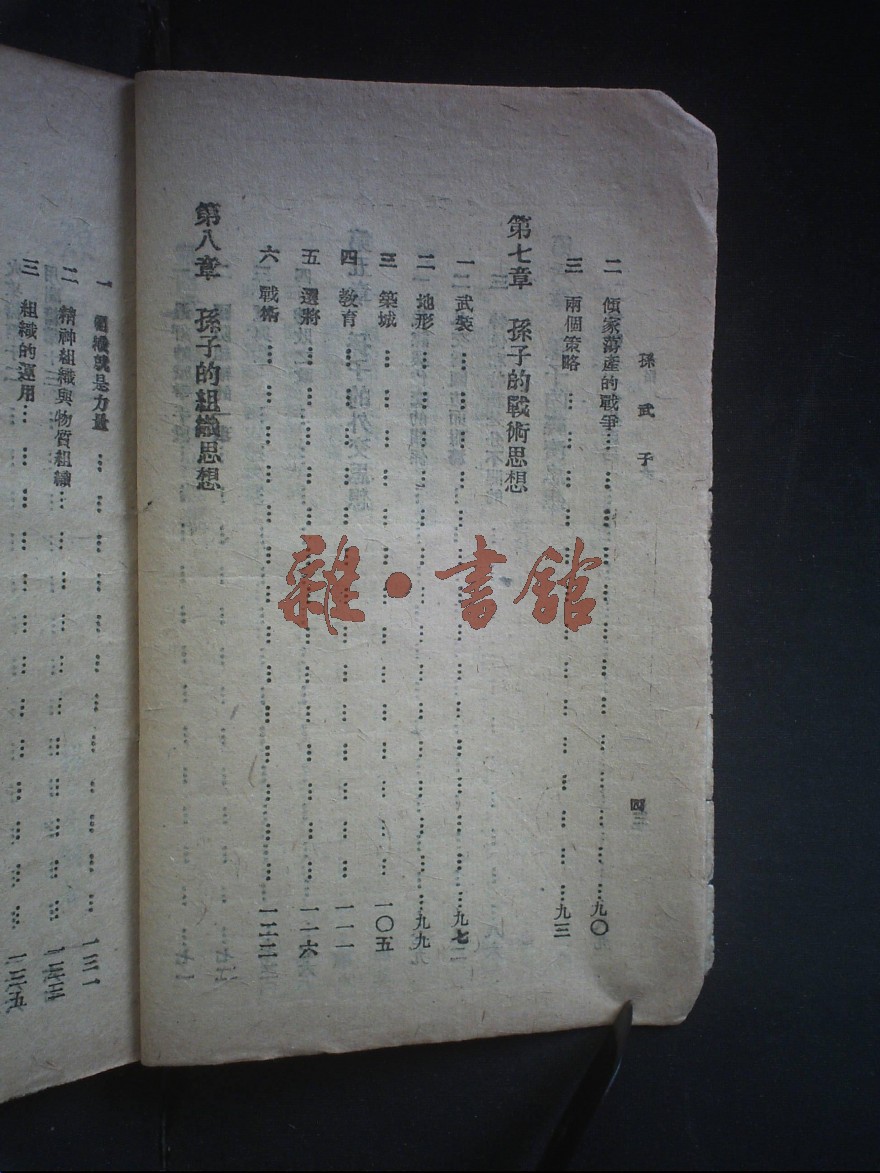 孫武子
四
二 傾家蕩產的戰爭 九〇
三 兩個策略 九三
第七章 孫子的戰術思想
一 武裝 九七
二 地形 九九
三 築城 一〇五
四 教育 一一一
五 選將 一一六
六 戰術 一二二
第八章 孫子的組織思想
一 組織就是力量 一三一
二 精神組織與物質組織 一三三
三 組織的運用 一三五
雜·書館